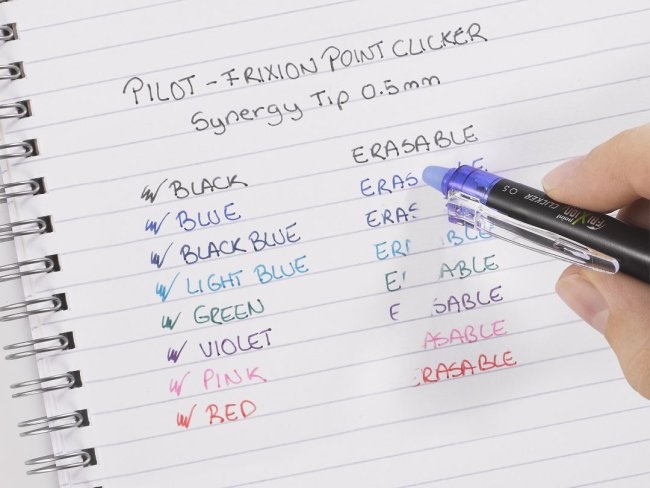 PILOT - FRIXION POINT CLICKER
Synergy Tip 0.5mm
BLACK ERASABLE
BLUE ERAS BLE
BLACK BLUE ERAS
LIGHT BLUE ER BLE
GREEN E ABLE
VIOLET E SABLE
PINK ASABLE
RED RASABLE
FRIXION point CLICKER 0.5